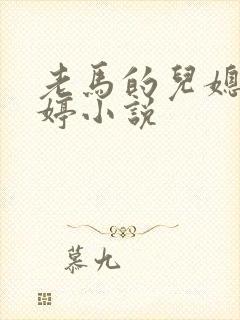 老馬的兒媳
婷小説
慕九